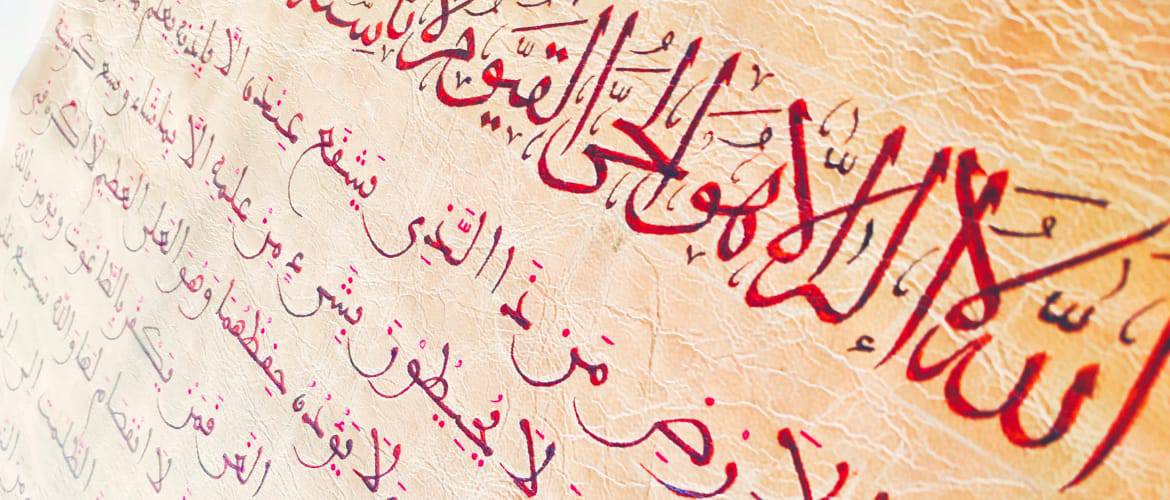 الله لا إله إلا هو الحي القيوم لا
مَن ذَا الَّذِى يَشفَع عِندَه الَّا بِاِذنِه يَعلَم
لَا يُحيطُونَ بِشَىءٍ مِن عِلمِه الَّا بِمَا شَاء وَسِعَ كُرسِيّه
وَلَا يَؤُدُه حِفظُهُمَا وَهُوَ العَلى العَظِيم لَا اكراه فى
الغَى فَمَن يَكفُر بِالطَّاغوت ويؤمن بالله
لا انفِصَام لَهَا وَالله سميع
الظُّلمت الى